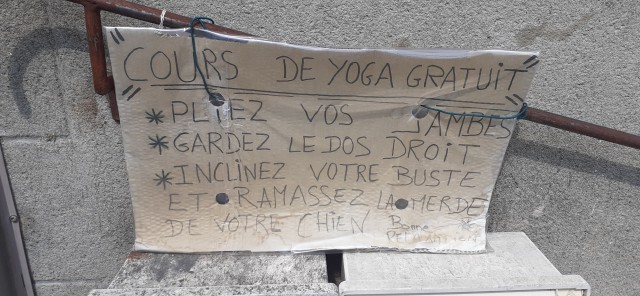 "COURS DE YOGA GRATUIT"
* PLIEZ VOS JAMBES
* GARDEZ LE DOS DROIT
* INCLINEZ VOTRE BUSTE
ET RAMASSEZ LA MERDE
DE VOTRE CHIEN Bonne